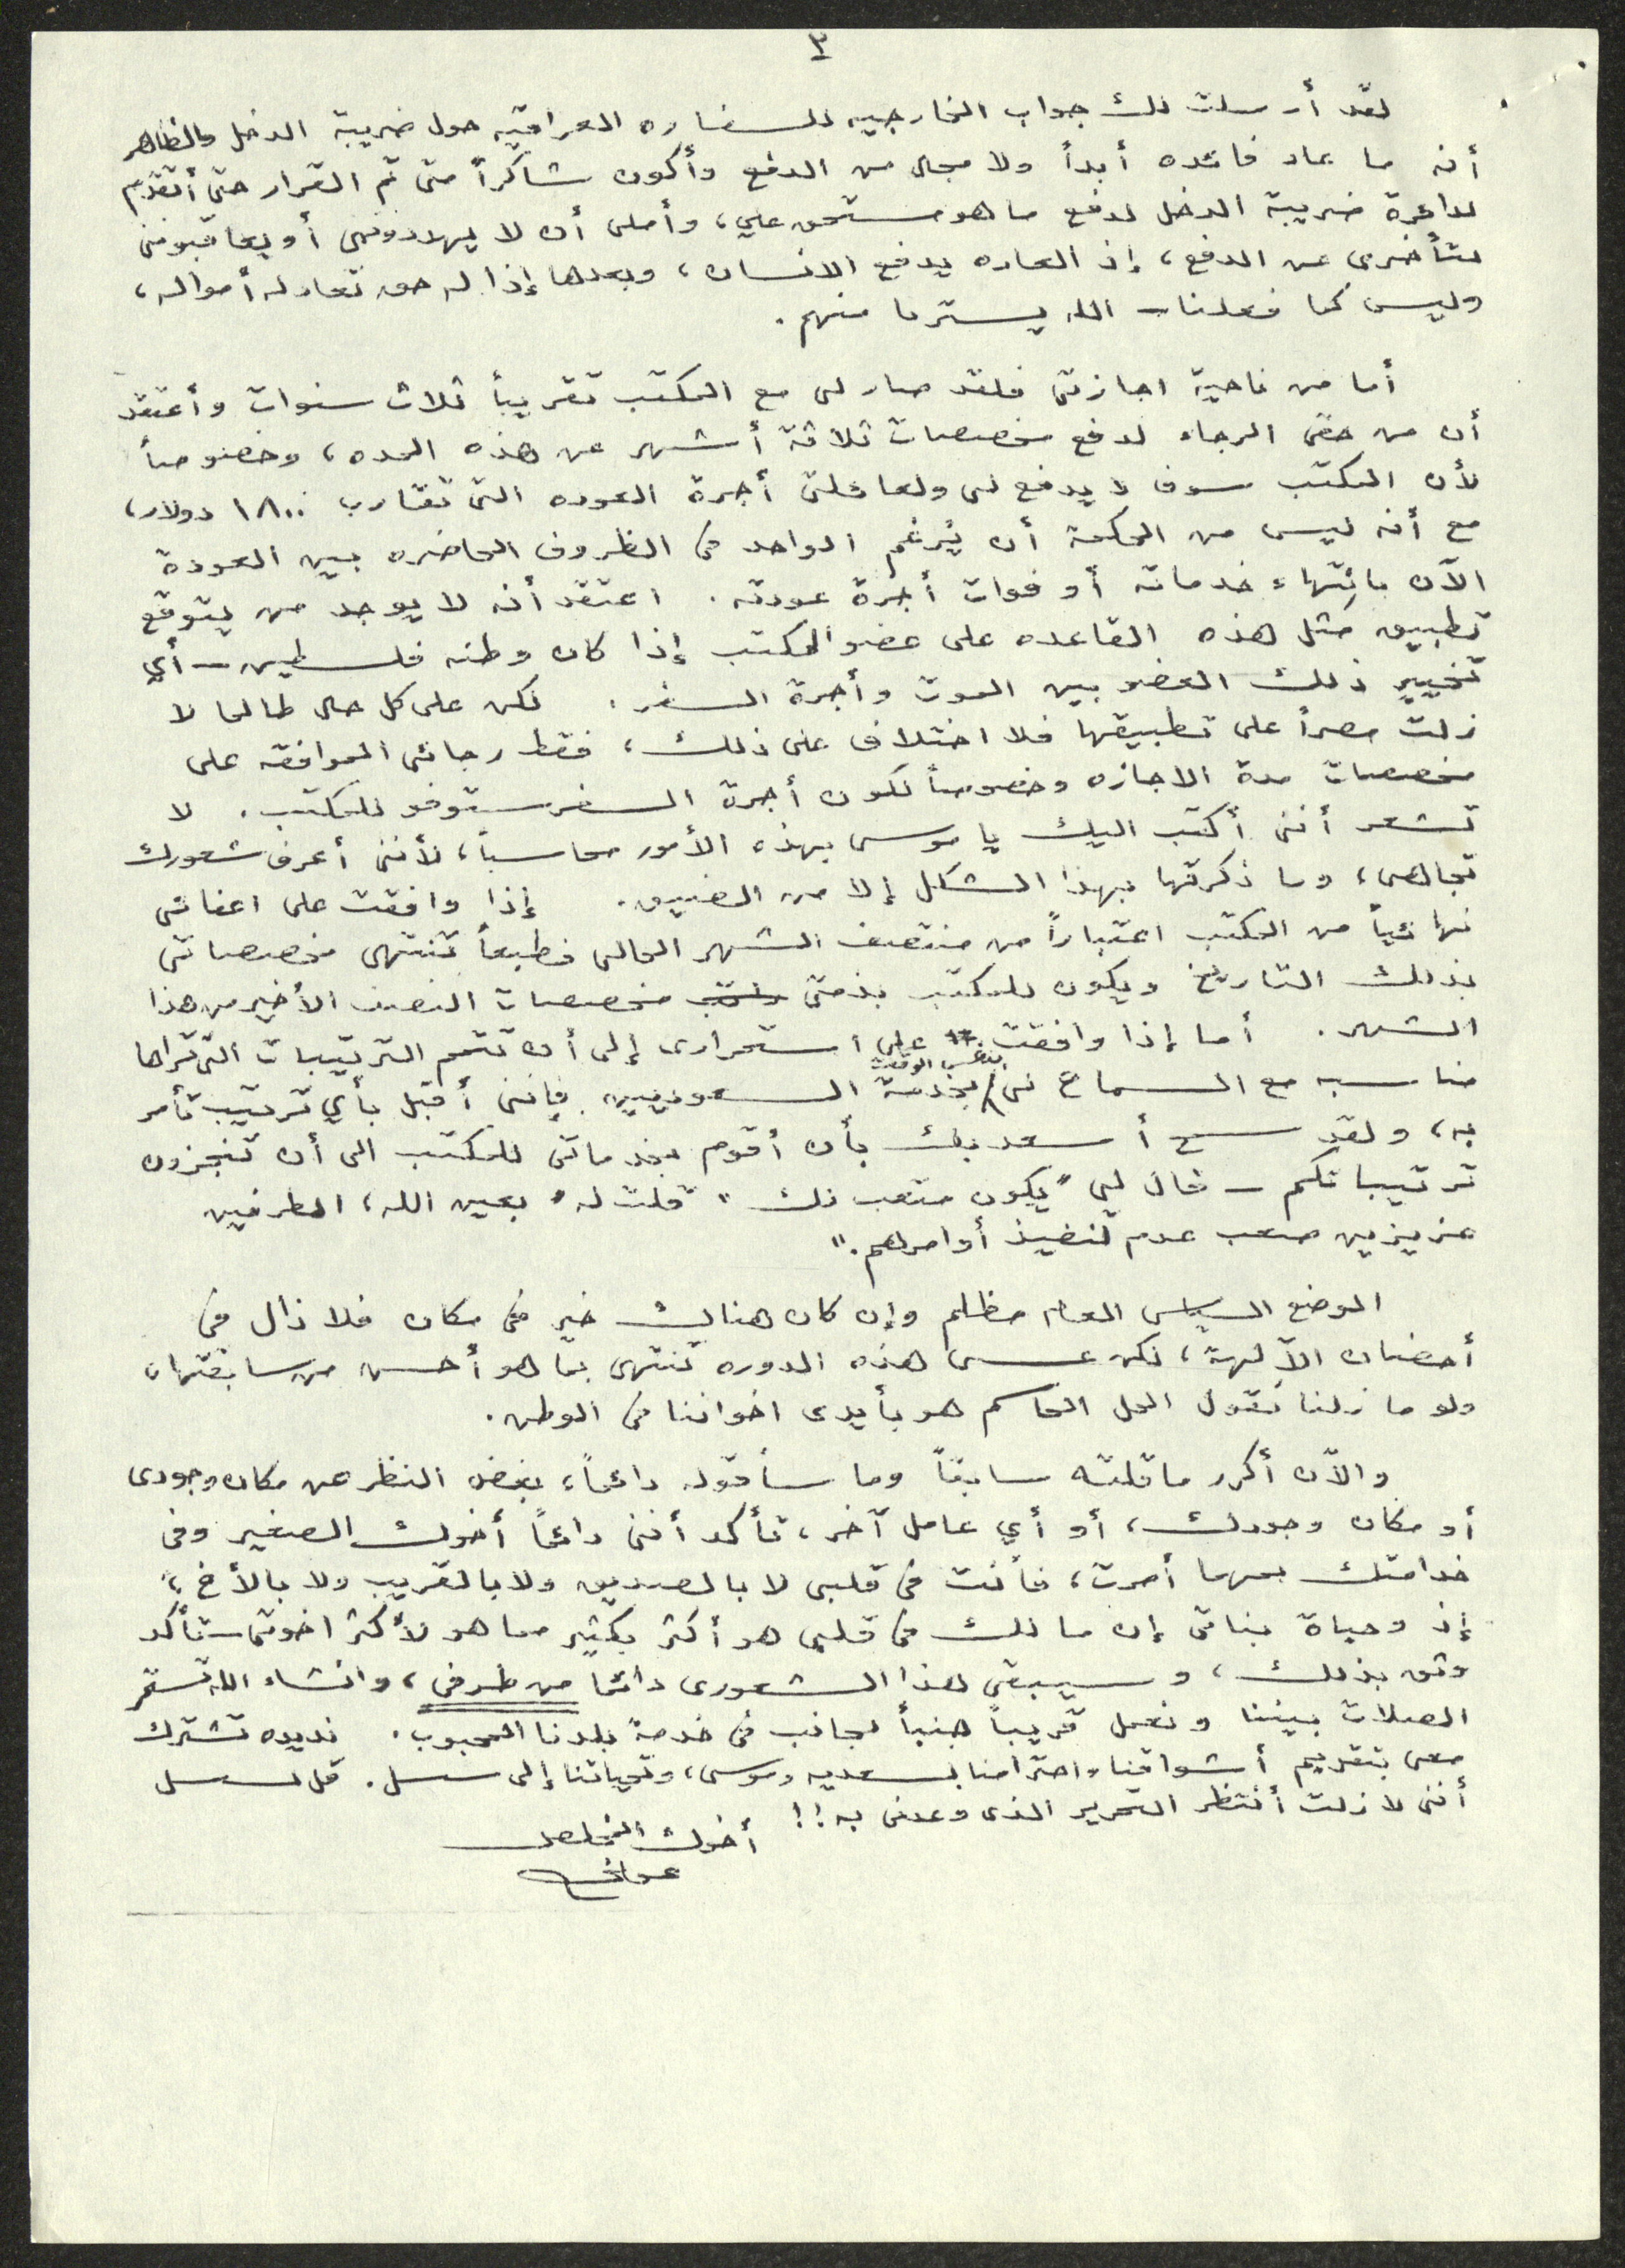 ٣
لقد أرسلت لك جواب الخارجيه للسفاره العراقيه حول ضريبة الدخل والظاهر
أنه ما عاد فائده أبداً ولا مجال من الدفع وأكون شاكراً متى تم القرار حتى أتقدم
لدائرة ضريبة الدخل لدفع ما هو مستحق علي، وأملى أن لا يهددوننى أو يعاقبوننى
لتأخرى عن الدفع، إذ العاده يدفع الانسان، وبعدها إذا له حق تعاد له أمواله،
وليس كما فعلنا - الله يسترنا منهم.
أما من ناحية اجازتى فلقد صار لى مع المكتب تقريباً ثلاث سنوات وأعتقد
أن من حقى الرجاء لدفع مخصصات ثلاثة أشهر عن هذه المده، وخصوصاً
لأن المكتب سوف لا يدفع لى ولعائلتى أجرة العوده التى تقارب ١٨٠٠ دولار،
مع أنه ليس من الحكمة أن يُرغم الواحد فى الظروف الحاضره بين العودة
الآن بانتهاء خدماته أو فوات أجرة عودته. اعتقد أنه لا يوجد من يتوقع
تطبيق مثل هذه القاعده على عضو المكتب إذا كان وطنه فلسطين - أي
تخيير ذلك العضو بين الموت وأجرة السفر. لكن على كل حال طالما لا
زلت مصراً على تطبيقها فلا اختلاف على ذلك، فقط رجائى الموافقه على
مخصصات مدة الاجازه وخصوصاً لكون أجرة السفر ستوفر للمكتب. لا
تشعر أننى أكتب اليك يا موسى بهذه الأمور محاسباً، لأننى أعرف شعورك
تجاهى، وما ذكرتها بهذا الشكل إلا من الضيق. إذا وافقت على اعفائى
نهائياً من المكتب اعتباراً من منتصف الشهر الحالى فطبعاً تنتهى مخصصاتى
بذلك التاريخ ويكون للمكتب بذمتى مخصصات النصف الأخير من هذا
الشهر. أما إذا وافقت على استمرارى إلى أن تتمم الترتيبات التى تراها
مناسبه مع السماح لى بنفس الوقت بخدمة السعوديين فإننى أقبل بأي ترتيب تأمر
به، ولقد أسعد بك بأن أقوم بخدماتى للمكتب الى أن تنجزون
ترتيباتكم - قال لي "يكون متعب لك" قلت له "بعين الله، الطرفين
عزيزين صعب عدم تنفيذ أوامرهم."
الوضع السياسى العام مظلم وإن كان هنالك خير فى مكان فلا زال فى
أحضان الآلهة، لكن عسى هذه الدوره تنتهى بما هو أحسن من سابقتها،
ولو ما زلنا نقول الحل الحاسم هو بأيدى اخواننا فى الوطن.
والآن أكرر ما قلته سابقاً وما سأقوله دائماً، بغض النظر عن مكان وجودى
أو مكان وجودك، أو أي عامل آخر، تأكد أننى دائماً أخوك الصغير وفى
خدامتك بمهما أمرت، فأنت فى قلبى لا بالصديق ولا بالقريب ولا بالأخ،
إذ وحياة بناتى إن ما لك فى قلبى هو أكثر بكثير مما هو لأكثر اخوتى - تأكد
وثق بذلك، وسيبقى هذا الشعورى دائما من طرفى، وانشاء الله تستمر
الصلات بيننا ونعمل قريباً جنباً لجانب فى خدمة بلدنا المحبوب. نديده تشترك
معى بتقديم أشواقنا واحترامنا لسعديه وموسى، وتحياتنا إلى سسل. قل لسسل
أننى لا زلت أنتظر التحرير الذى وعدنى به!!
أخوك المخلص
عونى